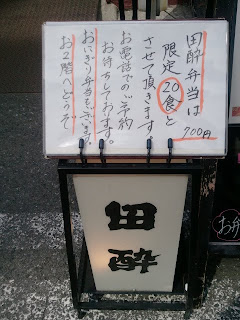 田酔弁当は
700円
限定20食と
させて頂きます
お電話でのご予約
お待ちしております。
おにぎり弁当もございます。
お2階へどうぞ
田酔
お弁